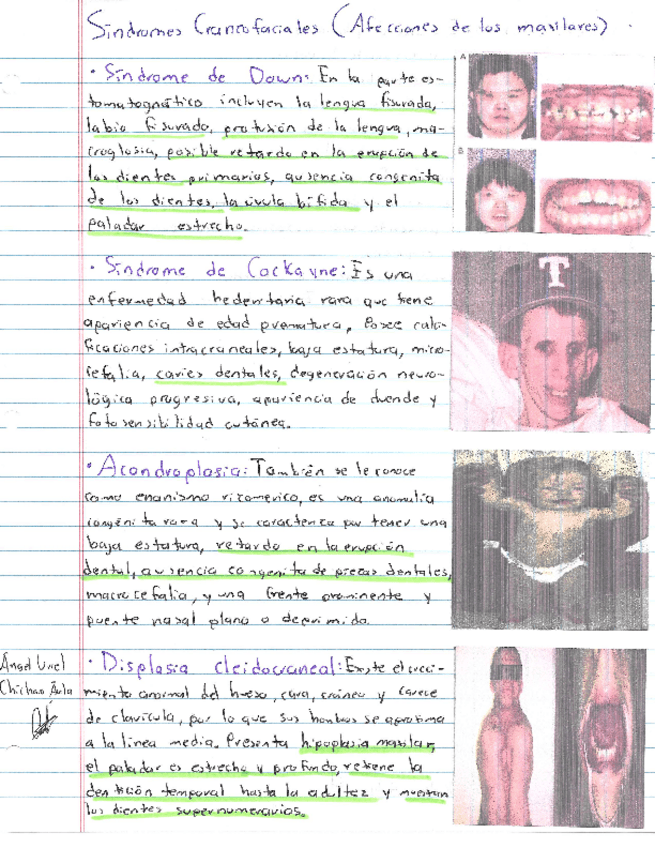 Síndromes Craneofaciales (Afecciones de los maxilares)
• Síndrome de Down: En la parte es-
tomatognático incluyen la lengua fisurada,
labio fisurado, protusión de la lengua, ma-
croglosia, posible retardo en la erupción de
los dientes primarios, ausencia congenita
de los dientes, la úvula bífida y el
paladar estrecho.
A
B
• Síndrome de Cockayne: Es una
enfermedad hederitaria rara que tiene
apariencia de edad prematura, Posee calci-
ficaciones intracraneales, baja estatura, micro-
cefalia, caries dentales, degeneración neuro-
lógica progresiva, apariencia de duende y
fotosensibilidad cutánea.
T
• Acondroplasia: También se le conoce
como enanismo rizomerico, es una anomalia
congénita rara y se caracteriza por tener una
baja estatura, retardo en la erupción
dental, ausencia congenita de piezas dentales,
macrocefalia, y una frente prominente y
puente nasal plano o deprimido.
Ángel Uriel
Chichan Ávila
• Displasia cleidocraneal: Existe el creci-
miento anormal del hueso, cara, cráneo y carece
de clavícula, por lo que sus hombros se aproxima
a la línea media. Presenta hipoplasia maxilar,
el paladar es estrecho y profundo, retiene la
dentición temporal hasta la adultez y muestran
los dientes supernumerarios.